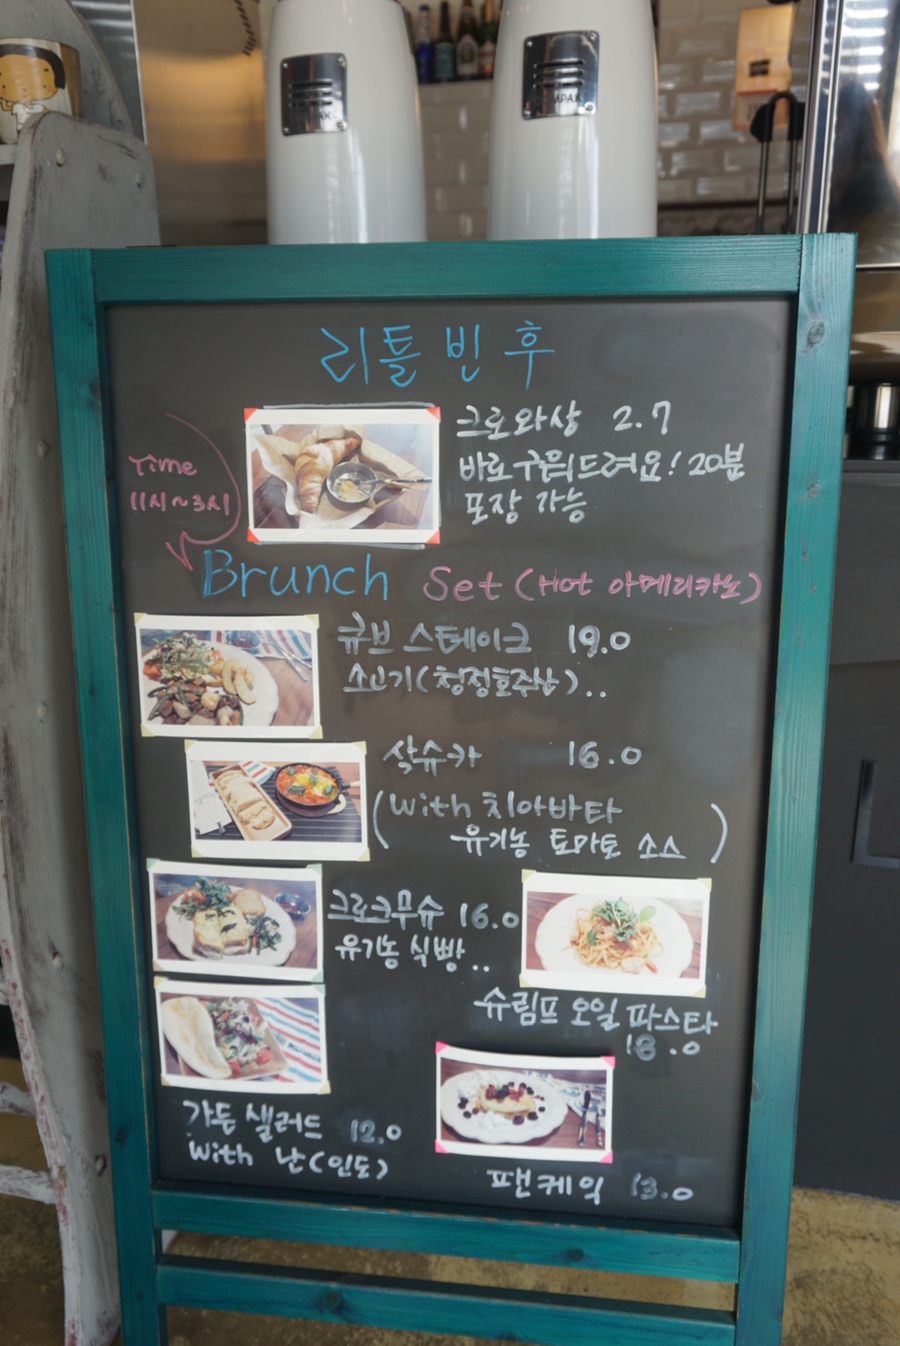 리틀 빈 후
크로와상 2.7
바로 구워드려요! 20분
포장 가능
Time
11시~3시
Brunch Set (Hot 아메리카노)
큐브 스테이크 19.0
소고기(청정호주산)..
삭슈카 16.0
(with 치아바타
유기농 토마토 소스)
크로크무슈 16.0
유기농 식빵..
슈림프 오일 파스타
18.0
가든 샐러드 12.0
with 난(인도)
팬케익 13.0